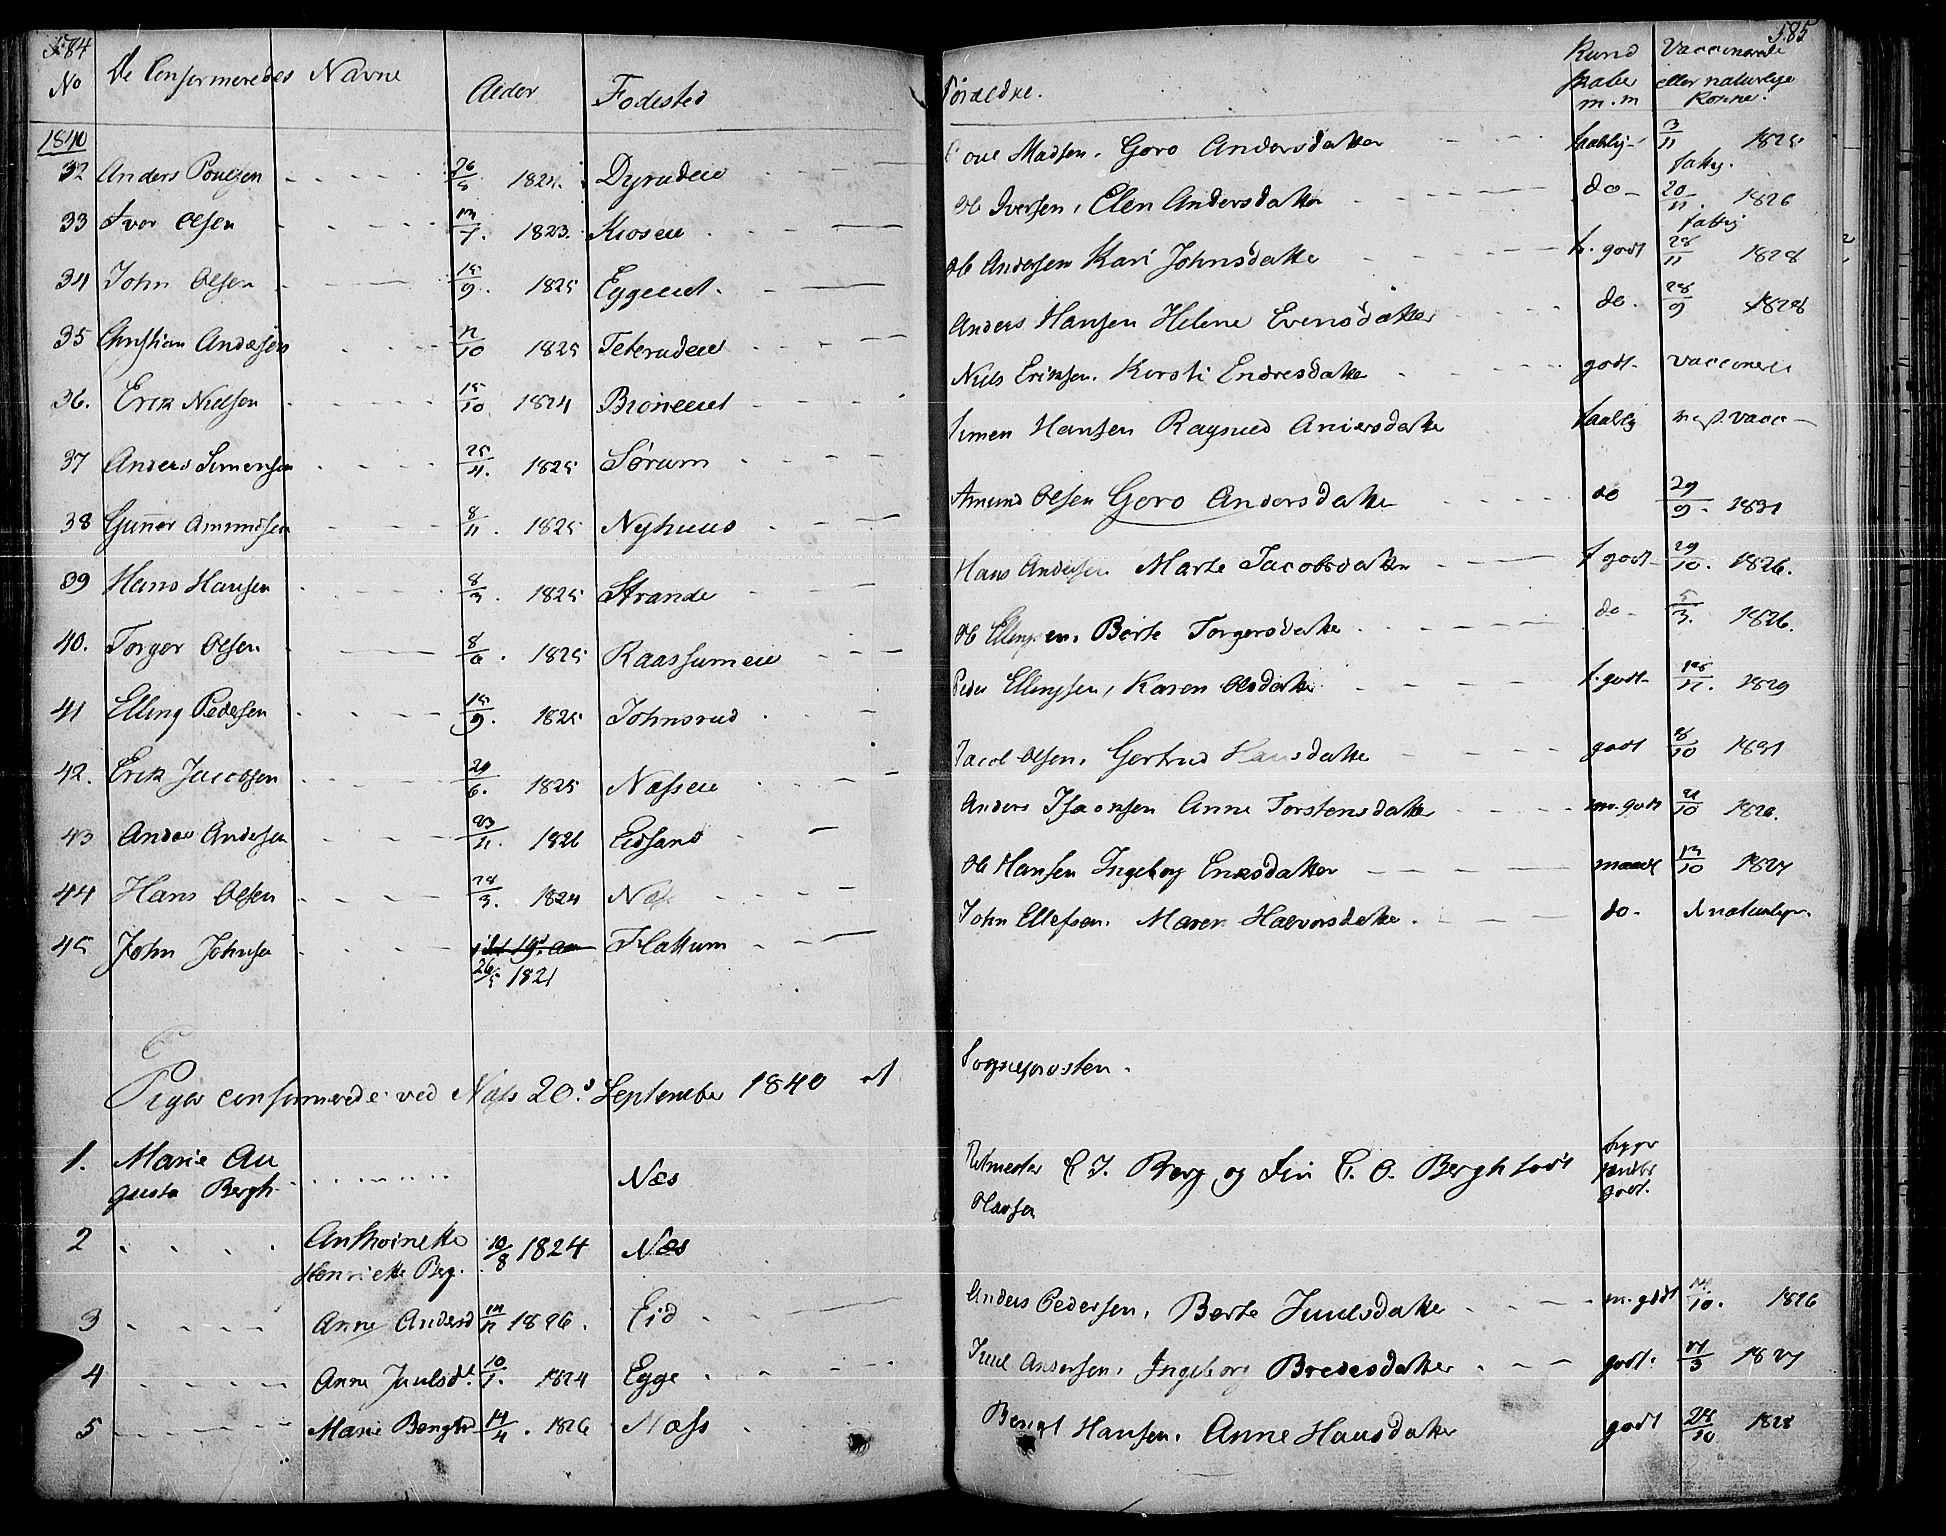 584
No De Confirmeredes Navne Alder Fødested
1840
32 Anders Poulsen 26/5 182 Dyrudeie
33 Iver Olsen 13/7. 1823. Moseie
34 John Olsen 15/9. 1825 Eggeeiet
35 Christian Andersen 12/10 1825 Teterudeie
36. Erik Nielsen 15/10 1824 Broneeiet
37 Anders Simensen 25/4. 1825 Sørum
38 Guner Amundsen 8/11. 1825 Nyhuus
39 Hans Hansen 8/3. 1825 Strande
40. Torger Olsen 8/6. 1825 Raassumeie
41 Elling Pedersen 15/9. 1825 Johnsrud
42. Erik Jacobsen 29/6. 1825 Næsseie
43 Anders Andersen 23/11. 1826 Eidsand
44 Hans Olsen 28/3. 1824 Næs
45 John Johnsen Flattum
26/5 1821
Piger confirmerede ved Næs 20d September 1840 af
1. Marie Au
gusta Bergh Næs
2 Anthoinette 10/8 1824 Næs
Henriette Berg.
3 Anne Andersd 14/11 1826. Eid
4 Anne Juulsdt. 10/1. 1824 Egge
5 Marie Bengtsd 14/4. 1826 Næss
585
Forældre. Kund Vaccinerede
skaber eller naturlige
m.m Kopper.
Poul Madsen, Goro Andersdatter taalig 3/11 1825
fattig.
Ole Iversen, Elen Andersdatter do 20/11. 1826
fattig
Ole Andersen Kari Johnsdatter t. godt 28/11 1828
Anders Hansen Helene Evensdatter do. 28/9 1828
Niels Eriksen. Kersti Endresdatter godt. vaccineret
Simen Hansen Ragned Andersdatter taalig vacc
Amund Olsen Goro Andersdatter do 29/9. 1831
Hans Andersen Marte Jacobsdatter t godt 29/10. 1826.
Ole Ellingsen. Berte Torgersdatter do 5/3. 1826.
Peder Ellingsen, Karen Olsdatter t. godt 18/11. 1829
Jacob Olsen. Gertrud Hansdatter godt 8/10 1831
Anders Isacsen Anne Torstensdatter m. godt 21/10 1826.
Ole Hansen Ingeborg Eriksdatter maadl 13/10 1827
John Ellefsen. Maren Halvorsdatter. do. d. naturlige.
Sognepresten.
Ritmester C J. Berg og Fru C. O. Bergh født meget
Hansen godt.
Anders Pedersen, Berte Juulsdatter m. godt 14/10. 1826
Juul Andersen, Ingeborg Bredesdatter godt. 11/3 1827
Bengt Hansen, Anne Hansdatter godt 28/10 1828